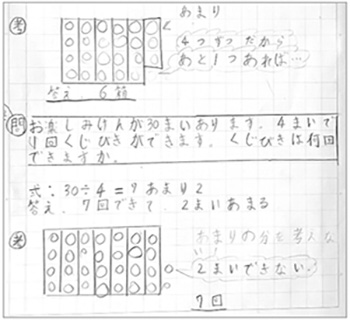 考
あまり
4つずつだから
あと1つあれば…
答え 6箱
問
お楽しみけんが30まいあります。4まいで
1回くじびきができます。くじびきは何回
できますか。
式:30÷4=7あまり2
答え.7回できて、2まいあまる
考
あまりの分を考えな
い。
2まいできない。
7回